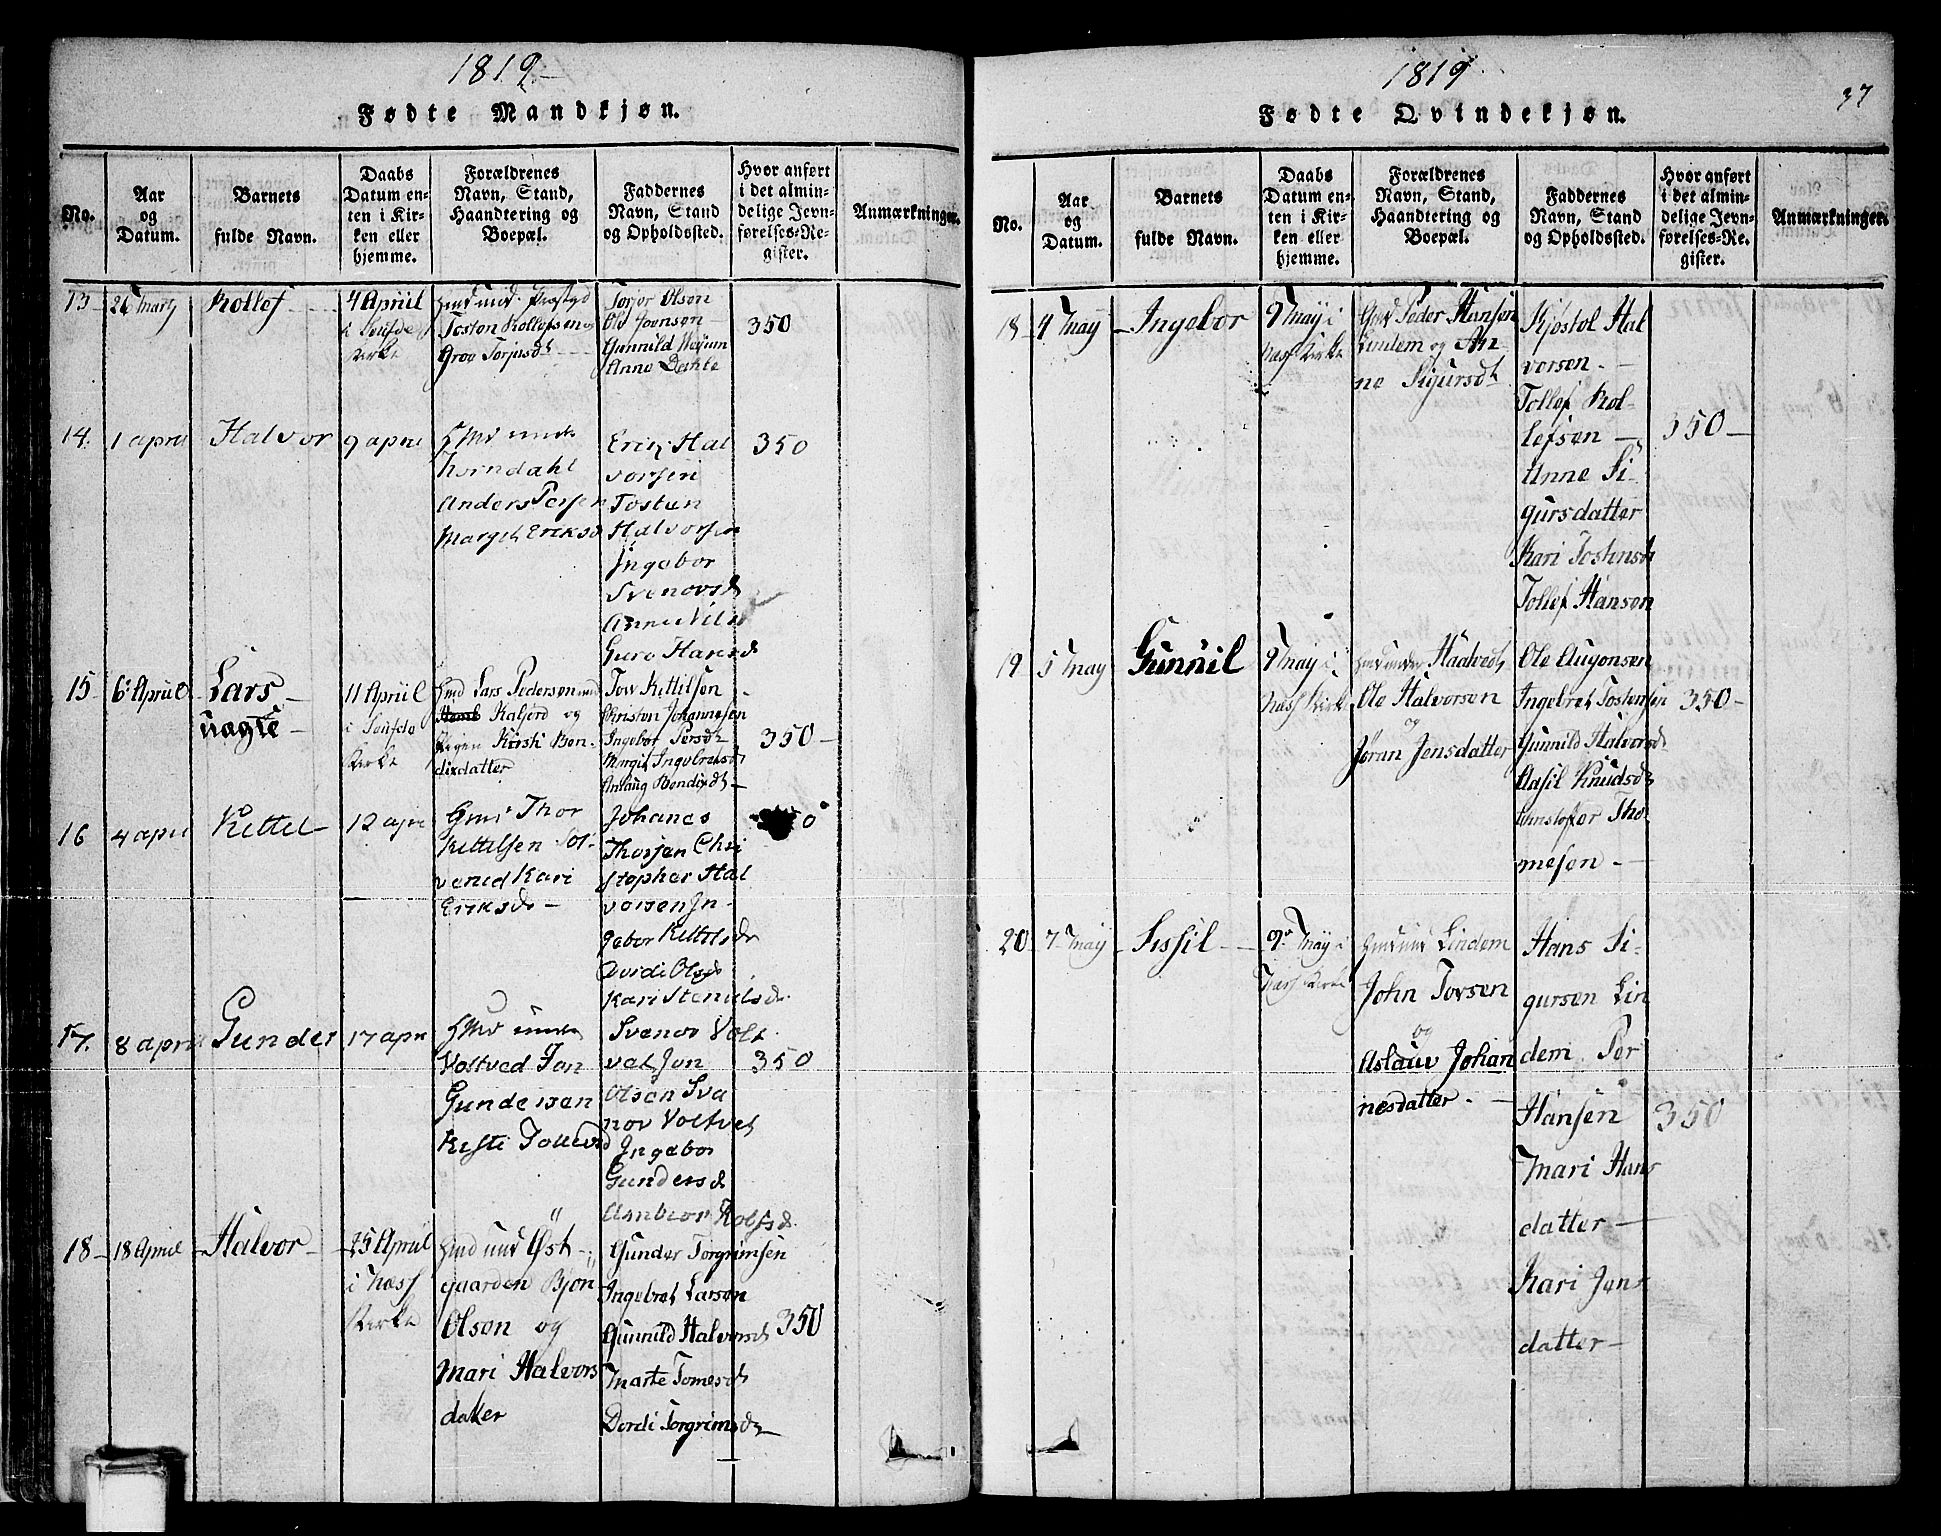 1819
Fødte Mandkjøn.
No.
Aar
og
Datum.
Barnets
fulde Navn.
Daabs
Datum en-
ten i Kir-
ken eller
hjemme.
Forældrenes
Navn, Stand,
Haandtering og
Boepæl.
Faddernes
Navn, Stand
og Opholdssted.
Hvor anført
i det almin-
delige Jevn-
førelses-Re-
gister.
Anmærkninger.
13
Rollef
4 Apriil
Kirke
Tosten Rollefsen og
Groe Torjusdt
Torjor Olsen
Ole Joensen
Gunnild
Anne Dahle
350
14.
1 april
Halvor
9 april
Anders Persen
Margit Eriksd
Erik Hal
vorsen
Tostun
Halvorsen
Ingebor
Svenovsd
Guro Hansd
350
15
6 Apriil
Lars
uægte
11 Apriil
i
Kirke
Lars Pedersen
Kaljord og
Pigen Kirsti Ben-
dixdatter
Tow Kittilsen
Christen Johannesen
Ingebor Persdt
Margit Ingebretsdt
Anlaug Bendixdt
350
16
4 apri
Kettel
12 apr
Thor
Kittilsen Sol-
Kari
Eriksd
Johanes
Thorsen Chri
stopher Hal
vorsen In-
gebor Kittilsd
Olsd
Kari
17.
8 april
Gunder
17 apri
Voltved Jon
Gundersen
Svenov Volt
vet Jon
Olsen Sva
nov Voltvet
Ingebor
Gundersd
350
18
18 Apriil
Halvor
25 Apriil
i Næss
Kirke
Øst-
gaarden Bjøn
Olsen og
Mari Halvors
datter
Gunder Torgrimsen
Ingebret Larsen
Gunnild Halvorsdt
Marte Tomesdt
Dordi Torgrimsdt
350
1819
37
Fødte Qvindekjøn.
No.
Aar
og
Datum.
Barnets
fulde Navn.
Daabs
Datum en-
ten i Kir-
ken eller
hjemme.
Forældrenes
Navn, Stand,
Haandtering og
Boepæl.
Faddernes
Navn, Stand
og Opholdssted.
Hvor anført
i det almin-
delige Jevn-
førelses-Re-
gister.
Anmærkninger.
18
4 May
Ingebor
9 May i
Næss Kirke
Peder Hansen
Lindem og An-
ne Sigursdt
Kjøstol Hal
vorsen
Tollef Rol-
lefsen
Anne Si-
gursdatter
Kari Tostensdt
Tollef Hansen
350
19
5 May
Gunnil
9 May i
Næss Kirke
Haatvedt
Ole Halvorsen
og
Jøran Jensdatter
Ole Augonsen
Ingebret Tostensen
Gunnild Halvorsdt
Aasil Knudsdt
Christoffer Tho-
mesen
350
20
7 May
Sissil
9 May i
Næss Kirke
Lindem
John Torsen
og
Aslaue Johan
nesdatter
Hans Si-
gursen Lin
dem Per
Hansen
Mari Hans
datter
Kari Jens
datter
350